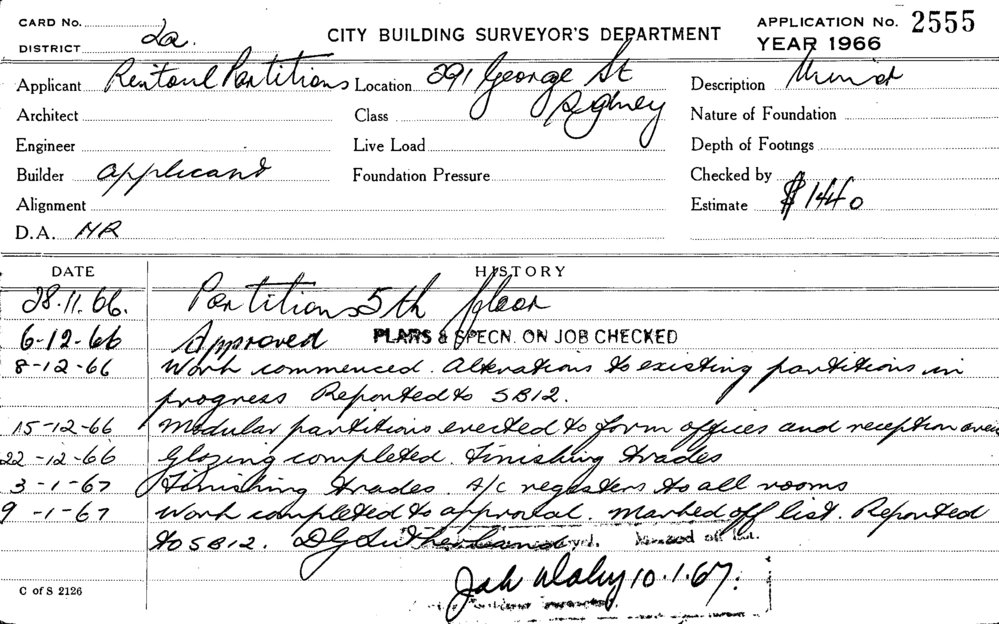 CARD No.
DISTRICT 2a.
CITY BUILDING SURVEYOR'S DEPARTMENT
APPLICATION No. 2555
YEAR 1966
Applicant Rentoul Partitions Location 291 George St Sydney Description
Architect Class Nature of Foundation
Engineer Live Load Depth of Footings
Builder applicant Foundation Pressure Checked by
Alignment Estimate $1440
D.A. NR
DATE HISTORY
28.11.66. Partitions 5th floor
6-12-66 Approved PLANS & SPECN. ON JOB CHECKED
8-12-66 Work commenced. Alterations to existing partitions in
progress Reported to SB12.
15-12-66 Modular partitions erected to form offices and reception area
22-12-66 Glazing completed. Finishing trades
3-1-67 Finishing trades. A/C registers to all rooms
9-1-67 Work completed to approval. Marked off list. Reported
to SB12. DG Sutherland
10.1.67.
C of S 2126